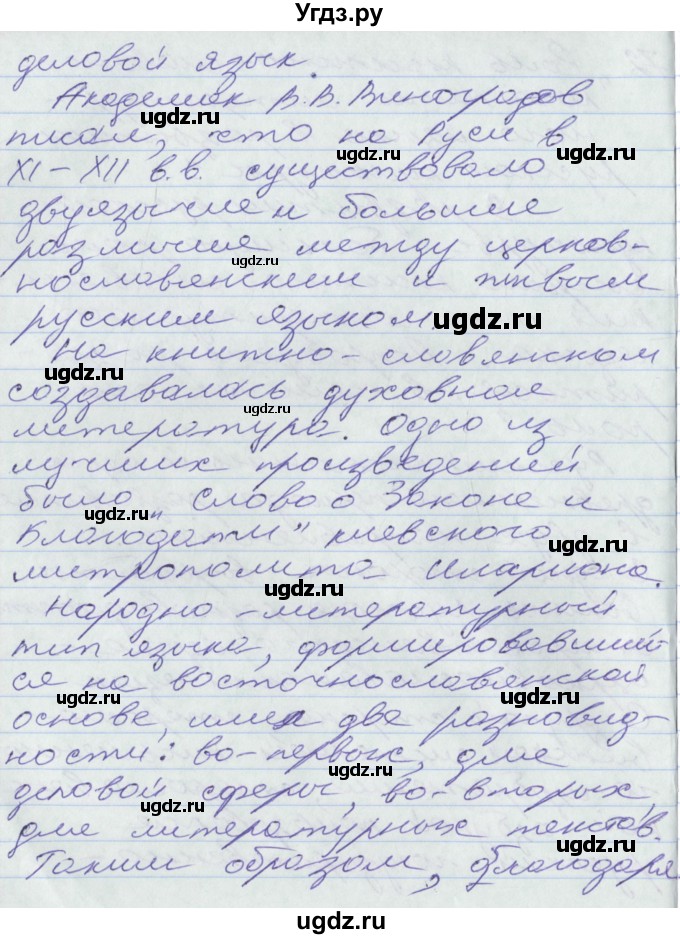 Угдз.ру
деловой язык.
Академик В.В. Виноградов
писал, что на Руси в
XI – XII в.в. существовало
двуязычие и большие
различия между церков-
нославянским и живым
русским языком.
На книжно-словянском
создавалась духовная
литература. Одно из
лучших произведений
было „Слово о Законе и
Благодати" киевского
митрополита Илариона.
Народно-литературный
тип языка, формировавший-
ся на восточнославянской
основе, имел две разновид-
ности: во-первых, для
деловой сферы, во-вторых,
для литературных текстов.
Таким образом, благодаря
ugdz.ru